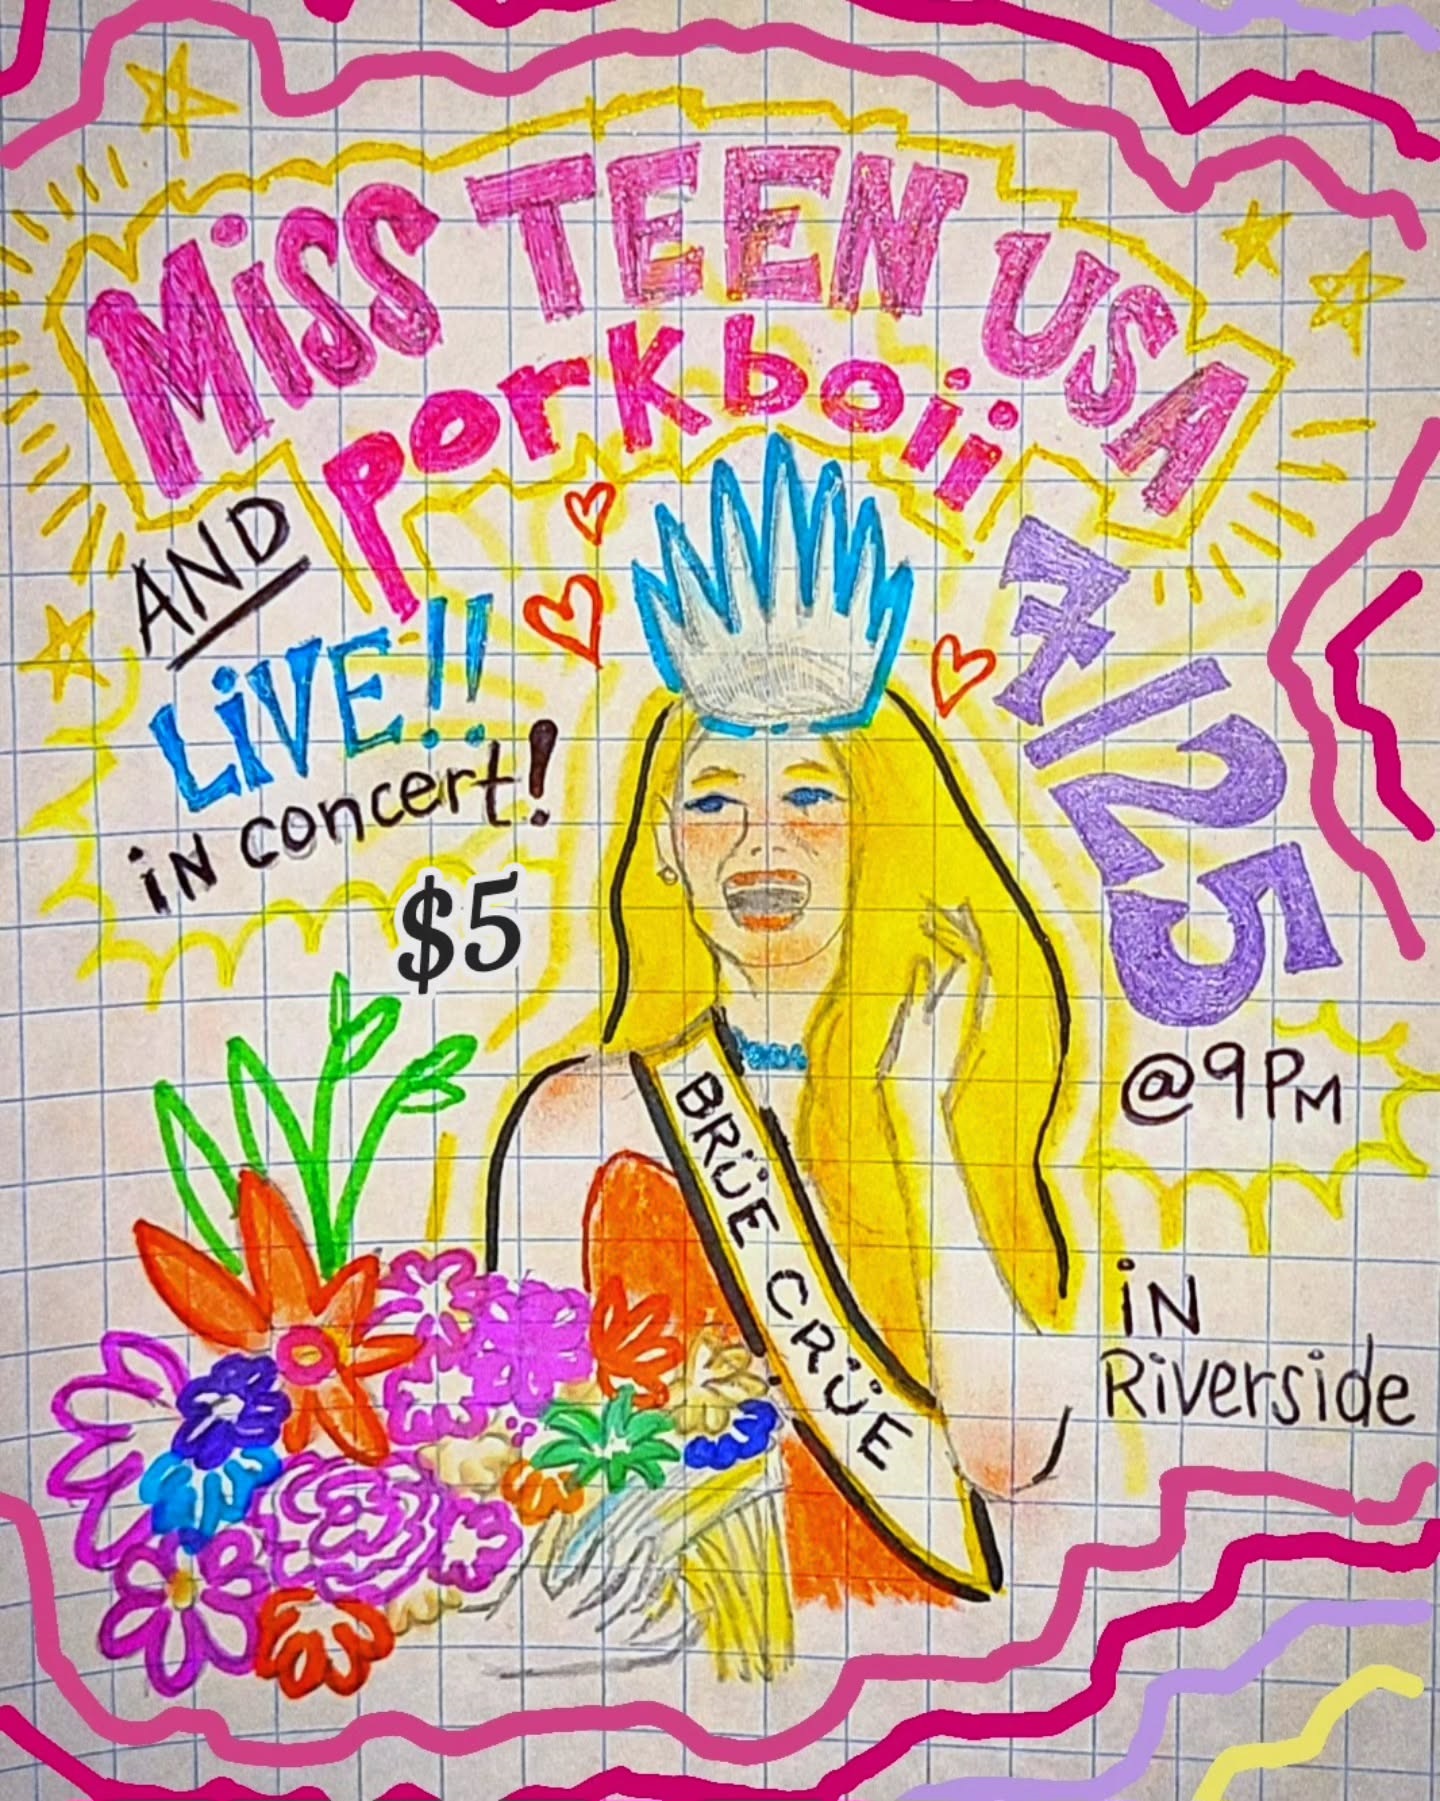 MiSS TEEN USA
AND
Porkboii
LiVE!!
iN concert!
$5
7/25
@9PM
iN
Riverside
BRÜE CRÜE